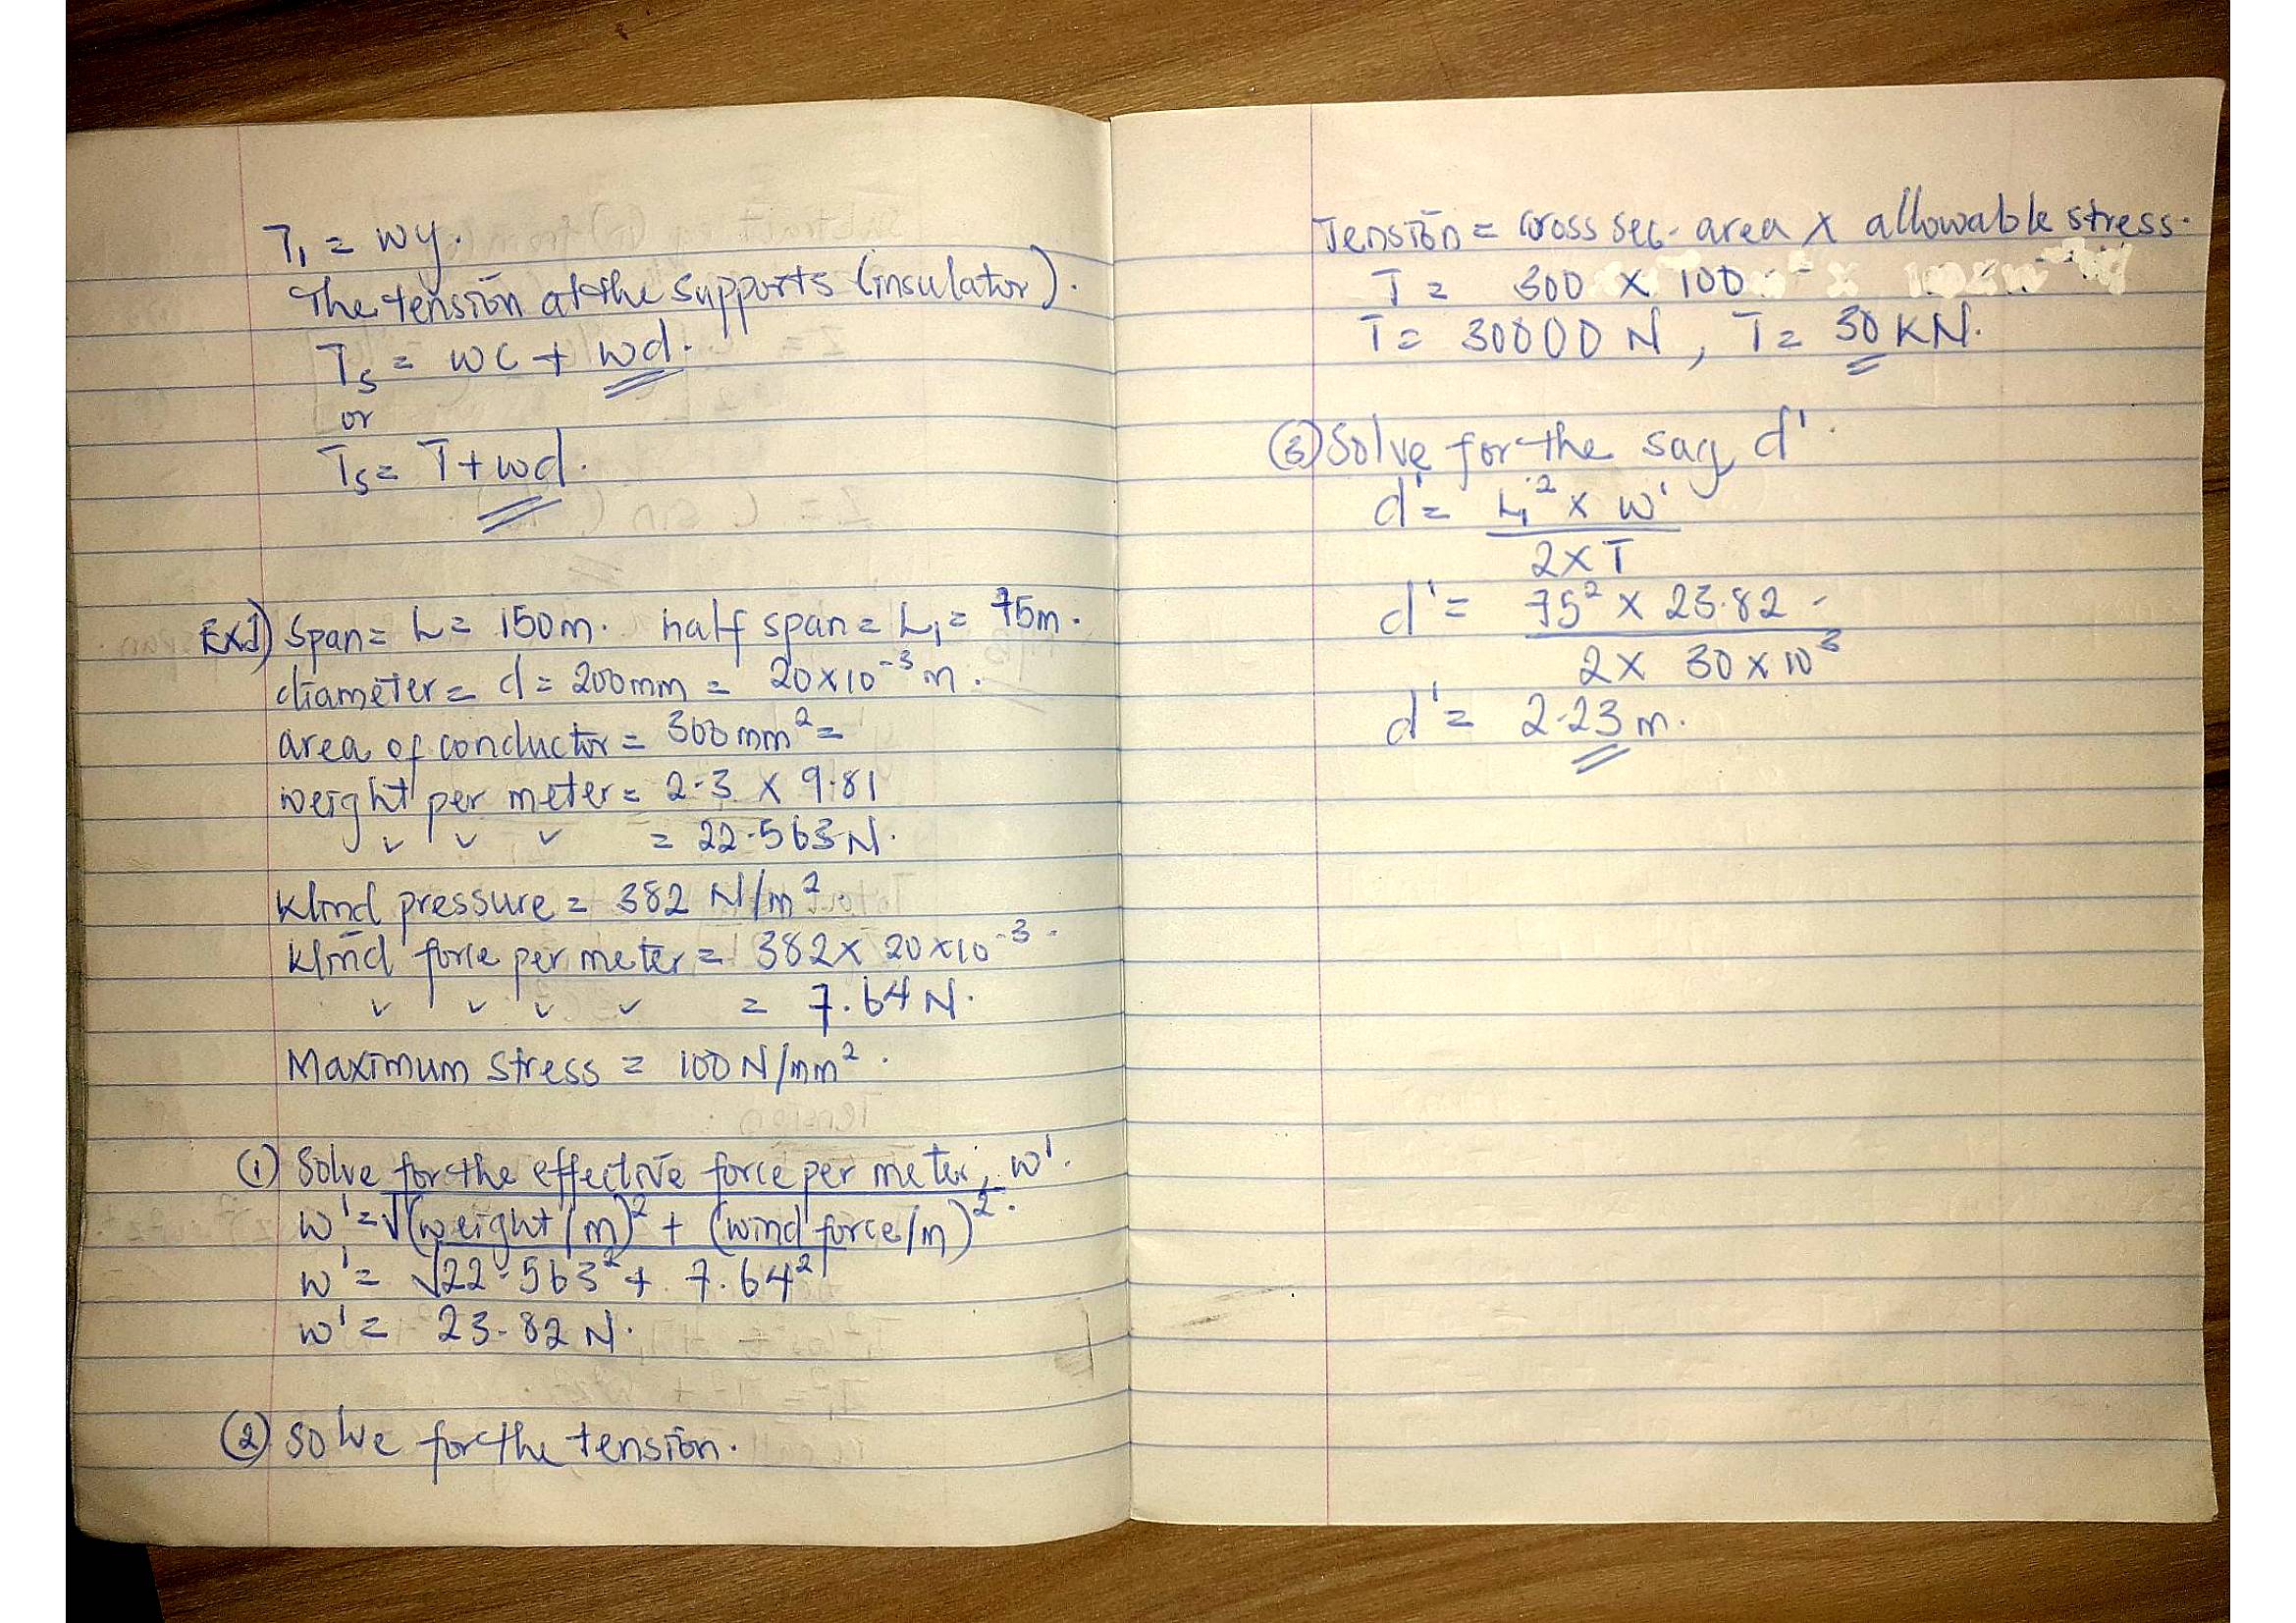 T₁ = wy.
The tension at the supports (insulator).
Ts = wc + wd.
or
Ts = T + wd.
Ex1) Span = L = 150m. half span = L₁ = 75m.
diameter = d = 200mm = 20×10⁻³m.
area of conductor = 300mm² =
weight per meter = 2.3 × 9.81
= 22.563N.
Wind pressure = 382 N/m²
Wind force per meter = 382 × 20×10⁻³.
= 7.64N.
Maximum stress = 100N/mm².
① Solve for the effective force per meter, w'.
w' = √(weight/m)² + (wind force/m)².
w' = √22.563² + 7.64²
w' = 23.82N.
② Solve for the tension.
Tension = cross sec. area × allowable stress.
T = 300 × 100
T = 30000N, T = 30KN.
③ Solve for the sag d'.
d' = L₁² × w'
2×T
d' = 75² × 23.82
2 × 30×10³
d' = 2.23m.